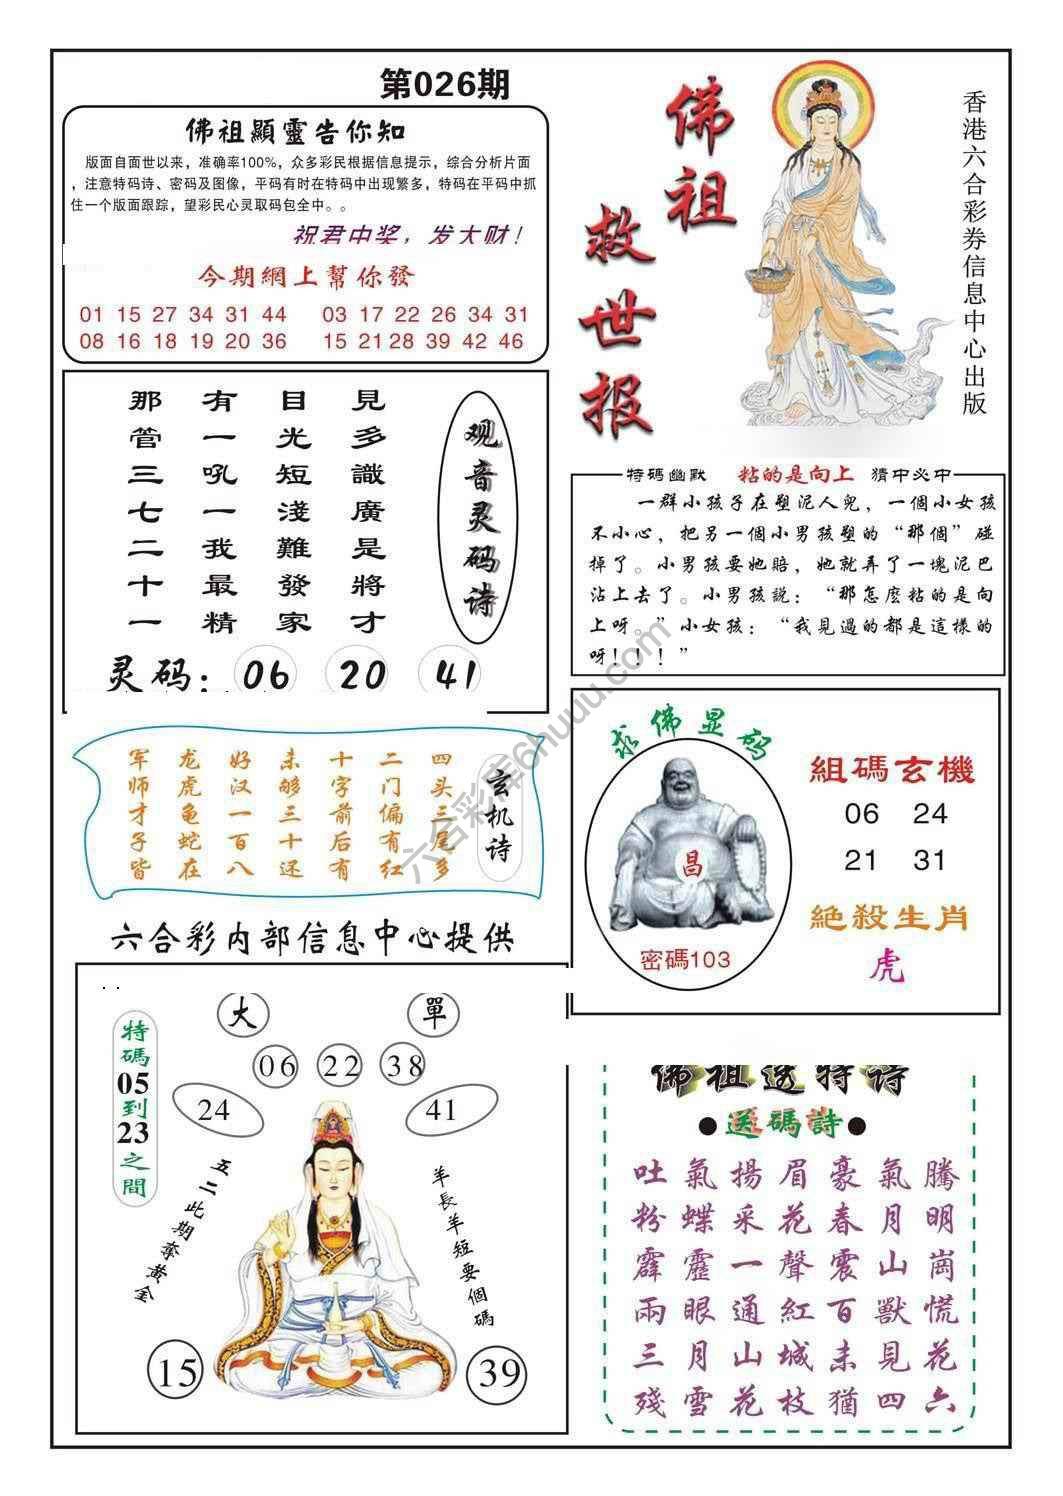 第026期
佛祖顯靈告你知
版面自面世以来，准确率100%，众多彩民根据信息提示，综合分析片面
，注意特码诗、密码及图像，平码有时在特码中出现繁多，特码在平码中抓
住一个版面跟踪，望彩民心灵取码包全中。。
祝君中奖，发大财！
今期網上幫你發
01 15 27 34 31 44 03 17 22 26 34 31
08 16 18 19 20 36 15 21 28 39 42 46
佛祖
救世报
香港六合彩券信息中心出版
观音灵码诗
見多識廣是將才
目光短淺難發家
有一吼一我最精
那管三七二十一
灵码：06 20 41
特碼幽默 粘的是向上 猜中必中
一群小孩子在塑泥人兒，一個小女孩
不小心，把另一個小男孩塑的“那個”碰
掉了。小男孩要她賠，她就弄了一塊泥巴
沾上去了。小男孩説：“那怎麽粘的是向
上呀。”小女孩：“我見過的都是這樣的
呀！！！”
玄机诗
四头三尾多
二门偏有红
十字前后有
未够三十还
好汉一百八
龙虎龟蛇在
军师才子皆
求佛显码
昌
密碼103
組碼玄機
06 24
21 31
絶殺生肖
虎
六合彩内部信息中心提供
大 單
06 22 38
24 41
特碼05到23之間
五二此期奪黃金
羊長羊短要個碼
15 39
佛祖透特诗
●送碼詩●
吐氣揚眉豪氣騰
粉蝶采花春月明
霹靂一聲震山崗
兩眼通紅百獸慌
三月山城未見花
殘雪花枝猶四六
六合彩库6huuu.com